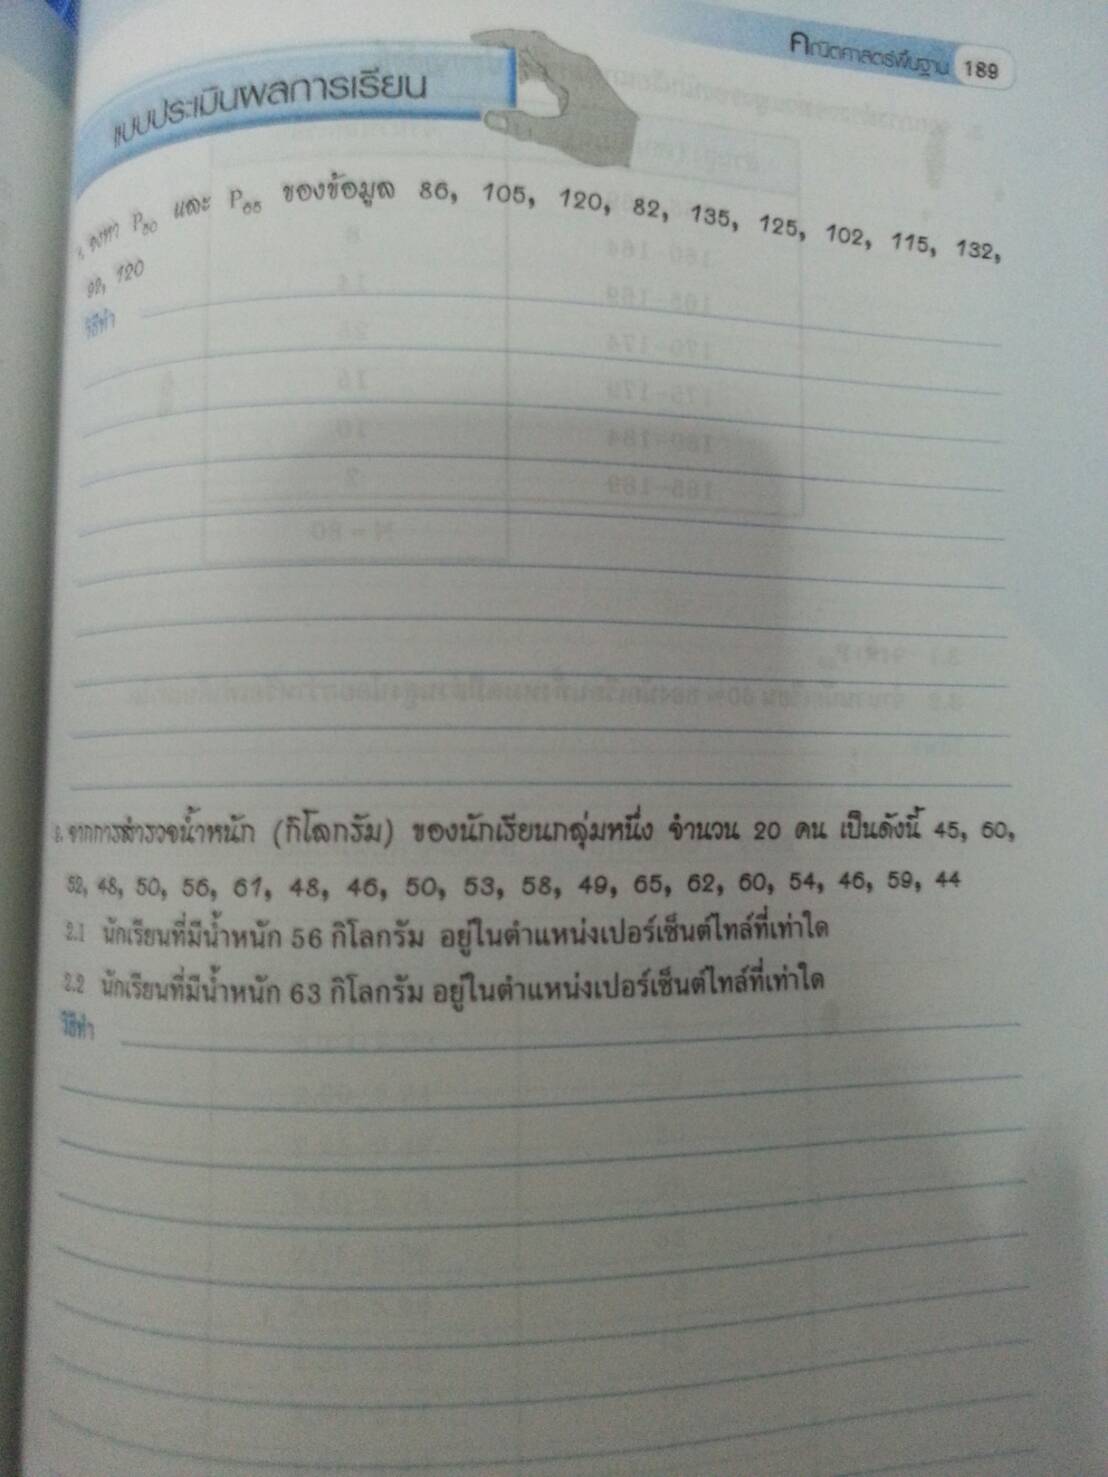 คณิตศาสตร์พื้นฐาน 189
แบบประเมินผลการเรียน
1. จงหา P₅₀ และ P₆₅ ของข้อมูล 86, 105, 120, 82, 135, 125, 102, 115, 132,
92, 120
วิธีทำ
2. จากการสำรวจน้ำหนัก (กิโลกรัม) ของนักเรียนกลุ่มหนึ่ง จำนวน 20 คน เป็นดังนี้ 45, 60,
52, 48, 50, 56, 61, 48, 46, 50, 53, 58, 49, 65, 62, 60, 54, 46, 59, 44
2.1 นักเรียนที่มีน้ำหนัก 56 กิโลกรัม อยู่ในตำแหน่งเปอร์เซ็นต์ไทล์ที่เท่าใด
2.2 นักเรียนที่มีน้ำหนัก 63 กิโลกรัม อยู่ในตำแหน่งเปอร์เซ็นต์ไทล์ที่เท่าใด
วิธีทำ